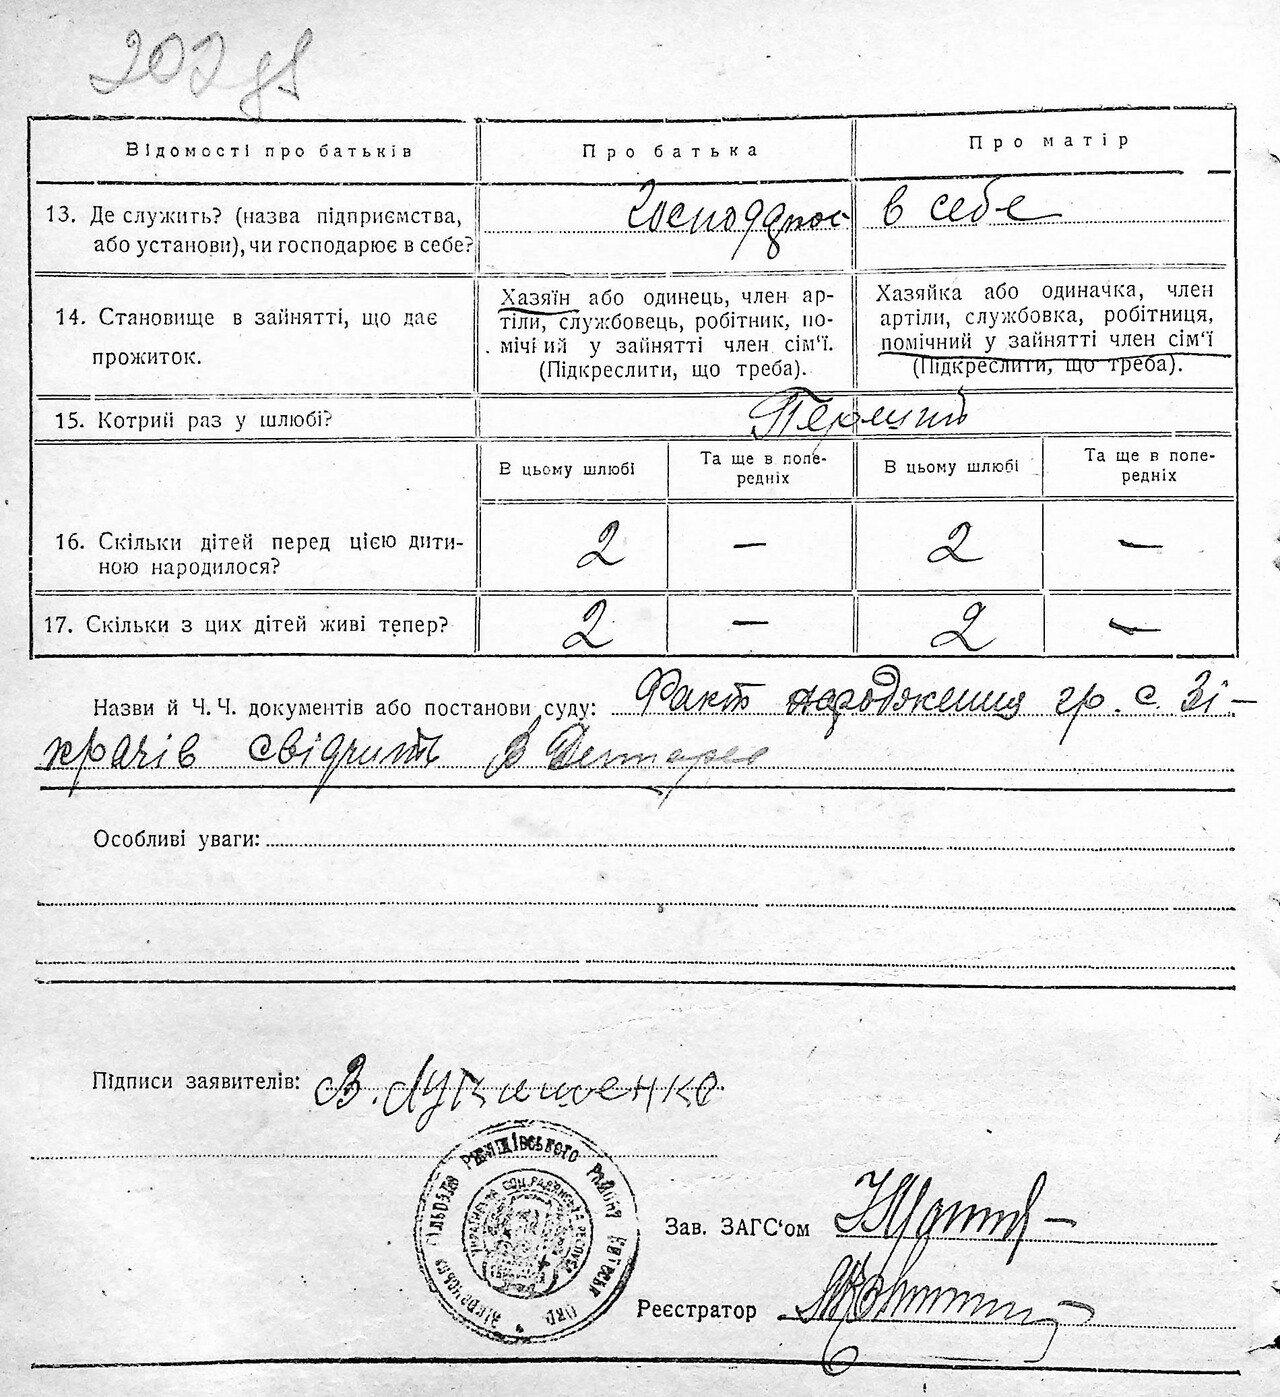 202
Відомості про батьків
Про батька
Про матір
13. Де служить? (назва підприємства,
або установи), чи господарює в себе?
в себе
14. Становище в зайнятті, що дає
прожиток.
Хазяїн або одинець, член ар-
тіли, службовець, робітник, по-
мічний у зайнятті член сім'ї.
(Підкреслити, що треба).
Хазяйка або одиначка, член
артіли, службовка, робітниця,
помічний у зайнятті член сім'ї
(Підкреслити, що треба).
15. Котрий раз у шлюбі?
Перший
В цьому шлюбі
Та ще в попе-
редніх
В цьому шлюбі
Та ще в попе-
редніх
16. Скільки дітей перед цією дити-
ною народилося?
2 — 2 —
17. Скільки з цих дітей живі тепер?
2 — 2 —
Назви й Ч. Ч. документів або постанови суду: Факт народження гр. с. Зі-
крачів свідчить
Особливі уваги:
Підписи заявителів: В. Лукашенко
Зікрачівська сільрада Ржищівського району Київськ. окр.
Українська Соц. Радянська Респуб.
Зав. ЗАГС'ом
Реєстратор